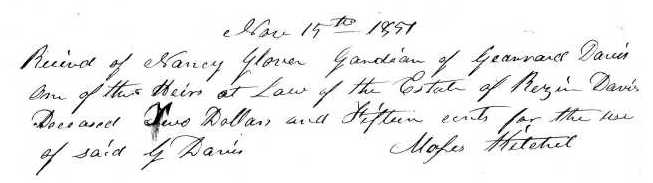 Nov 15th 1851
Recievd of Nancy Glover Gardian of Geanvard Davis
One of the Heirs at Law of the Estate of Rezin Davis
Deceased Two Dollars and Fifteen cents for the use
of said G Davis Moses Kitchel